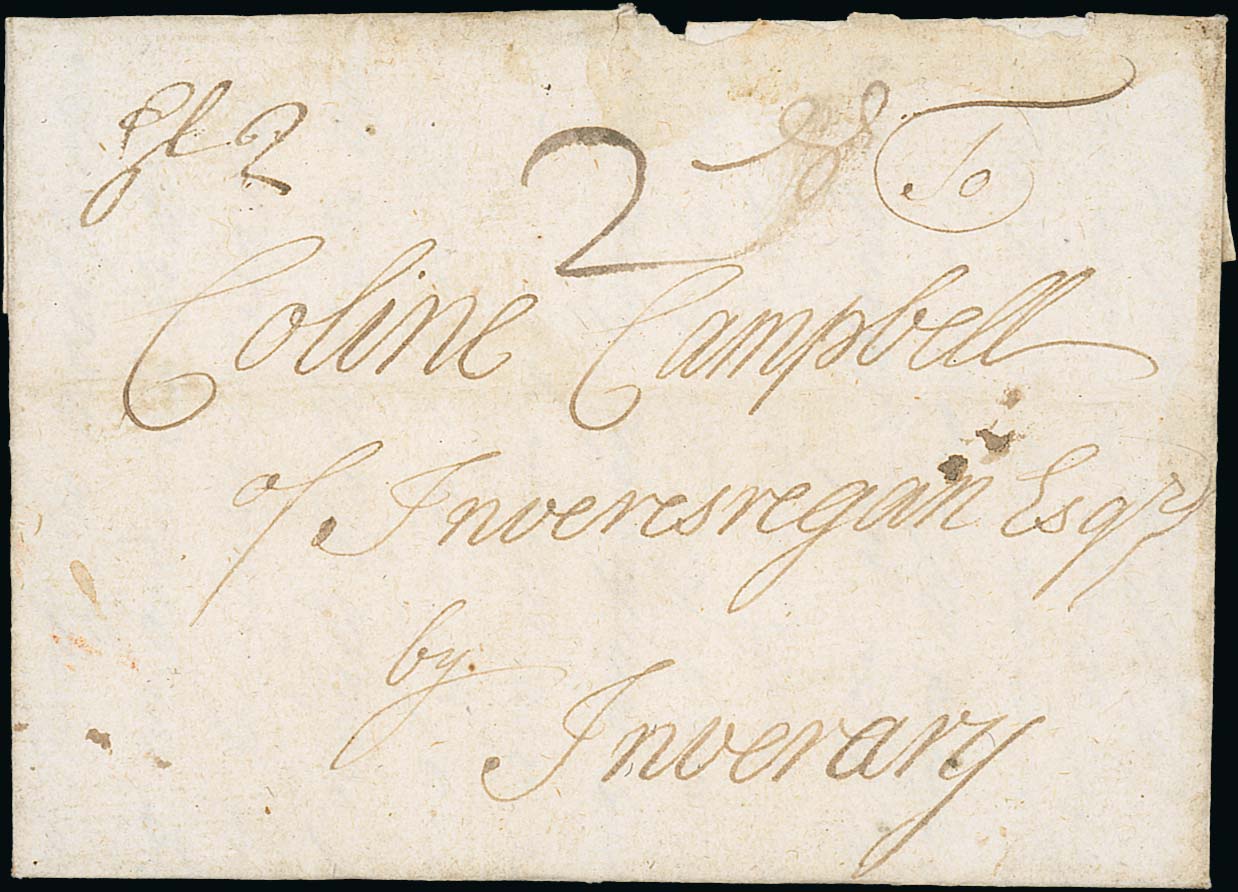 Gl 2
2
To
Coline Campbell
of Inveresregan Esqr
by
Inverary